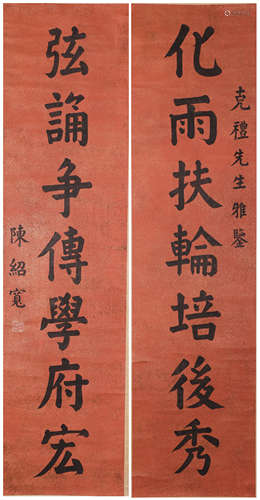 克禮先生雅鑒
化雨扶輪培後秀
弦誦争傳學府宏
陳紹寬